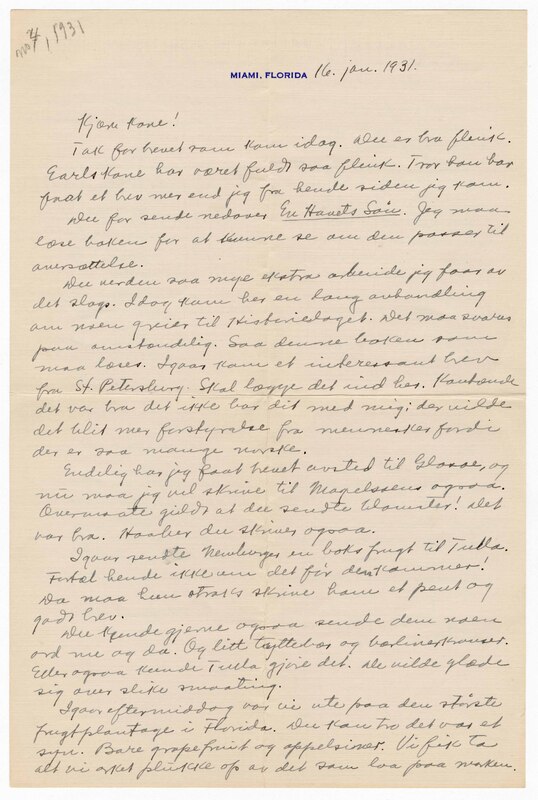 1931
MIAMI, FLORIDA 16. jan. 1931.
Kjære Kone!
Tak for brevet som kom idag. Du er bra flink.
Earls Kone har været fuldt saa flink. Tror han har
faat et brev mer end jeg fra hende siden jeg kom.
Du for sende nedover En Havets Søn. Jeg maa
læse boken for at kunne se om den passer til
oversættelse.
Du verden saa mye ekstra arbeide jeg faar av
det slags. Idag kom her en lang avhandling
om noen greier til Historielaget. Det maa svares
paa omstændelig. Saa denne boken som
maa læses. Igaar kom et interessant brev
fra St. Petersburg. Skal lægge det ind her. Kanhænde
det var bra det ikke bar dit med mig; der vilde
det blit mer forstyrelse fra mennesker fordi
der er saa mange norske.
Endelig har jeg faat brevet avsted til Glasoe, og
nu maa jeg vel skrive til Magelssens ogsaa.
Overmaate gildt at du sendte blomster! Det
var bra. Haaber du skriver ogsaa.
Igaar sendte Newburger en boks frugt til Tulla.
Fortæl hende ikke om det før den kommer!
Da maa hun straks skrive ham et pent og
godt brev.
Du kunde gjerne ogsaa sende dem noen
ord nu og da. Og litt tyttebær og berlinerkranser.
Eller ogsaa kunde Tulla gjøre det. De vilde glæde
sig over slike smaating.
Igaar eftermiddag var vi ute paa den største
frugtplantage i Florida. Du kan tro det var et
syn. Bare grapefruit og appelsiner. Vi fik ta
alt vi orket plukke op av det som laa paa marken.